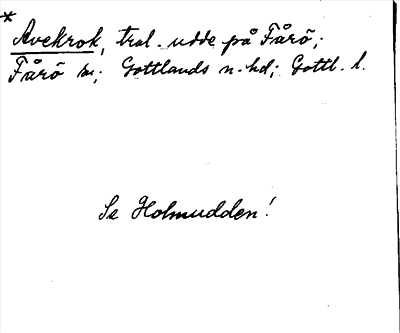 *
Avekrok, tral. udde på Fårö;
Fårö sn; Gottlands n. hd; Gottl. l.
Se Holmudden!